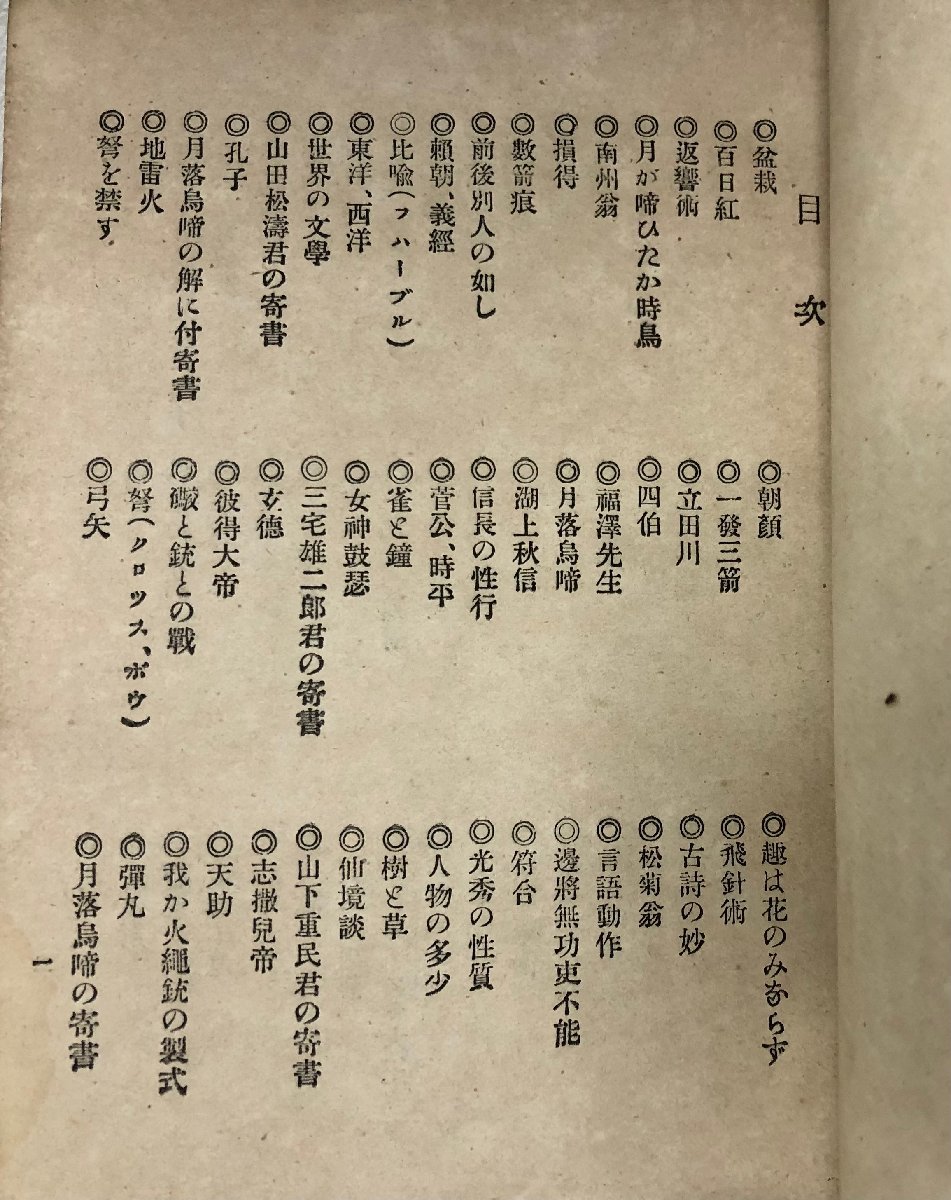 目次
◎盆栽
◎朝顔
◎趣は花のみならず
◎百日紅
◎一發三箭
◎飛針術
◎返響術
◎立田川
◎古詩の妙
◎月が啼ひたか時鳥
◎四伯
◎松菊翁
◎南州翁
◎福澤先生
◎言語動作
◎損得
◎月落烏啼
◎邊將無功吏不能
◎數箭痕
◎湖上秋信
◎符合
◎前後別人の如し
◎信長の性行
◎光秀の性質
◎頼朝、義經
◎菅公、時平
◎人物の多少
◎比喩(フハーブル)
◎雀と鐘
◎樹と草
◎東洋、西洋
◎女神鼓瑟
◎仙境談
◎世界の文學
◎三宅雄二郎君の寄書
◎山下重民君の寄書
◎山田松濤君の寄書
◎玄德
◎志撒兒帝
◎孔子
◎彼得大帝
◎天助
◎月落烏啼の解に付寄書
◎と銃との戰
◎我か火繩銃の製式
◎地雷火
◎弩(クロツス、ボウ)
◎彈丸
◎弩を禁す
◎弓矢
◎月落烏啼の寄書
一